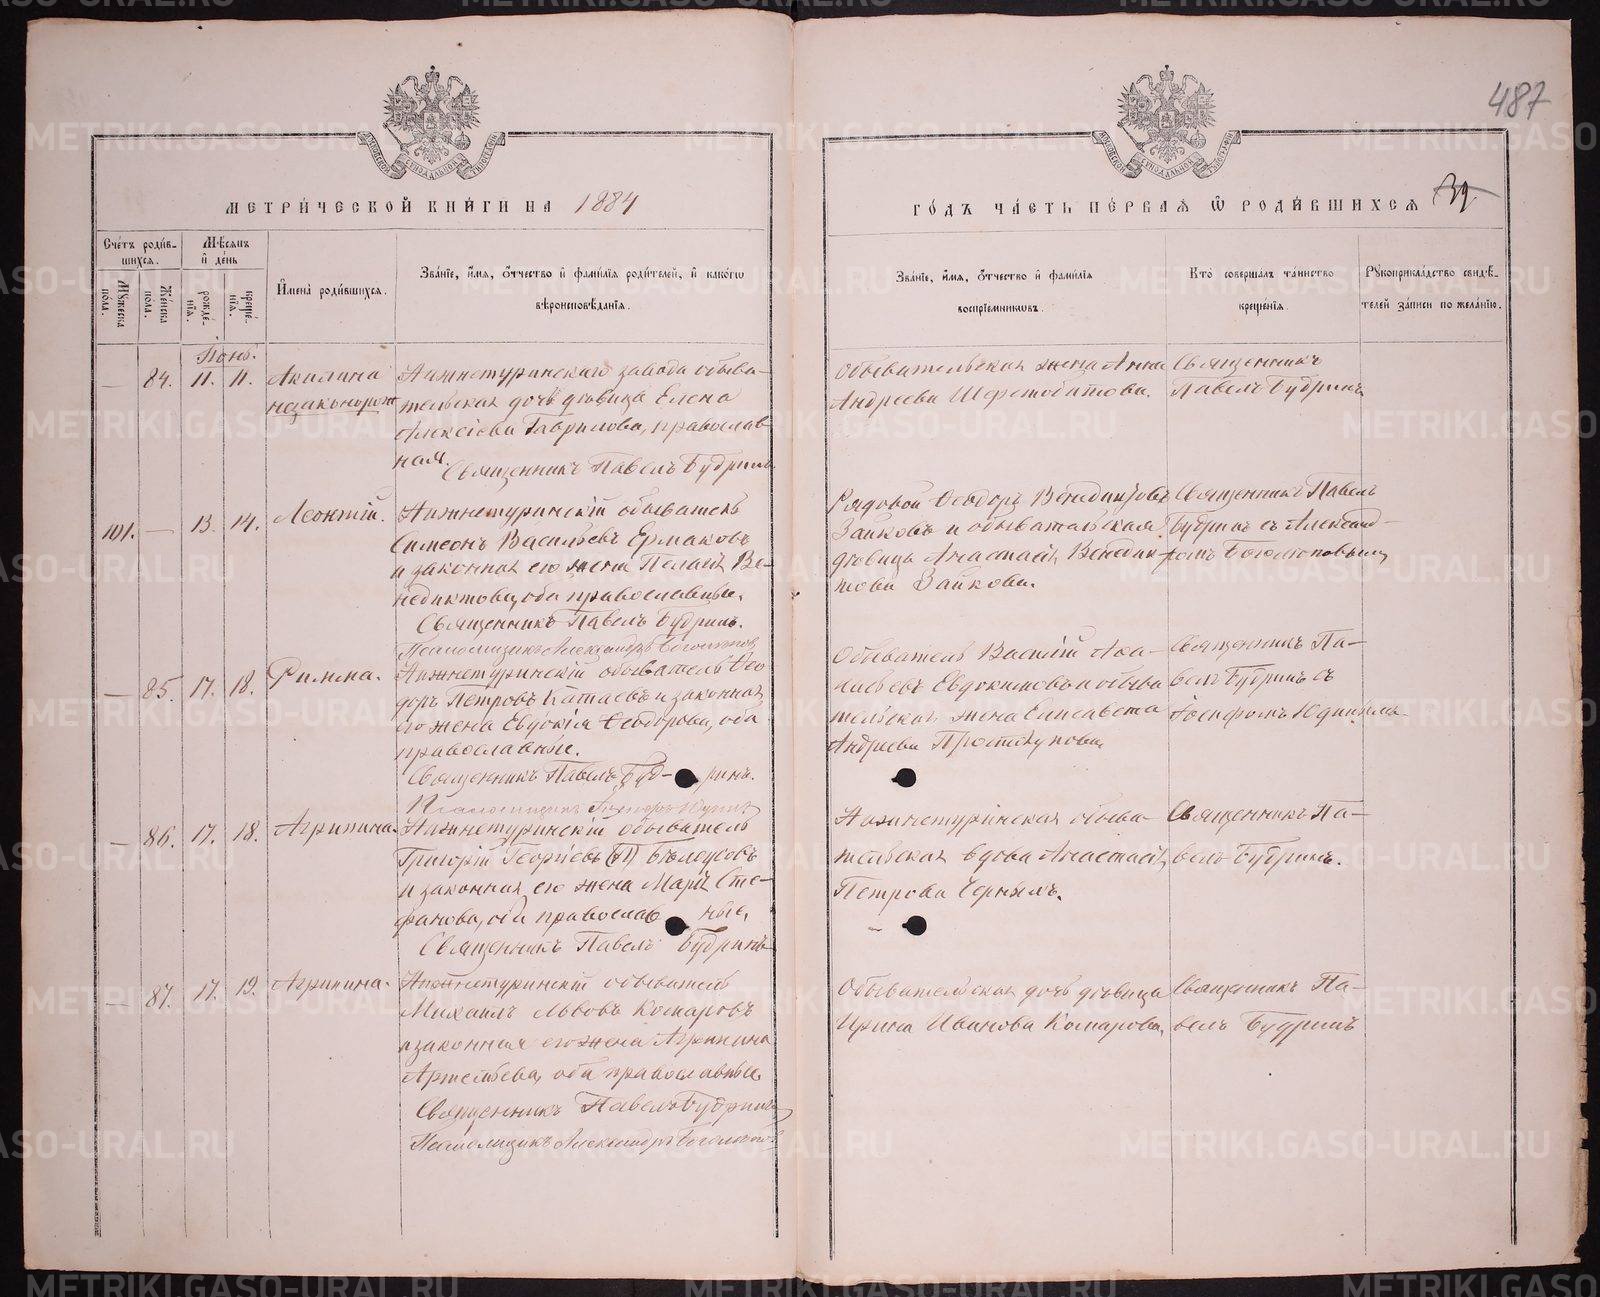 487
МЕТРИЧЕСКОЙ КНИГИ НА 1884
ГОДЪ ЧАСТЬ ПЕРВАЯ Ѡ РОДИВШИХСЯ 39
Счетъ родившихся.
Мѣсяцъ и день
Мужеска пола.
Женска пола.
рожденїя.
крещенїя.
Имена родившихся.
Званїе, имя, отчество и фамилїя родителей, и какогѡ
вѣроисповѣданїя.
Званїе, имя, отчество и фамилїя
воспрїемникωвъ.
Кто совершалъ таинство
крещенїя.
Рукоприкладство свидѣ-
телей записи по желанїю.
Іюнь.
— 84. 11. 11. Акилина
незаконорож
Нижнетуринскаго завода обыва-
тельская дочь дѣвица Елена
Алексіева Гаврилова, православ-
ная.
Священникъ Павелъ Будринъ
Обывательская жена Анна
Андреева Шерстобитова.
Священникъ
Павелъ Будринъ
101. — 13. 14. Леонтій.
Нижнетуринскій обыватель
Симеонъ Васильевъ Ермаковъ
и законная его жена Пелагія Ве-
недиктова, оба православные.
Священникъ Павелъ Будринъ.
Псаломщикъ Александръ Боголюповъ
Рядовой Ѳеодоръ Венедиктовъ
Зайковъ и обывательская
дѣвица Анастасія Венедик-
това Зайкова.
Священникъ Павелъ
Будринъ съ Александ-
ромъ Боголюповымъ
— 85. 17. 18. Римма.
Нижнетуринскій обыватель Ѳео-
доръ Петровъ Катаевъ и законная
его жена Евдокія Ѳеодорова, оба
православные.
Священникъ Павелъ Буд- ринъ.
Псаломщикъ
Обыватель Василій Аѳа-
насьевъ Евдокимовъ и обыва
тельская жена Елисавета
Андреева Простокупова.
Священникъ Па-
велъ Будринъ съ
Іосифомъ Юдинымъ.
— 86. 17. 18. Агрипина.
Нижнетуринскій обыватель
Григорій Георгіевъ Бѣлоусовъ
и законная его жена Марія Сте-
фанова, оба православ ные.
Священникъ Павелъ Будринъ
Нижнетуринская обыва-
тельская вдова Анастасія
Петрова Черныхъ.
Священникъ Па-
велъ Будринъ.
— 87. 17. 19. Агрипина.
Нижнетуринскій обыватель
Михаилъ Львовъ Комаровъ
и законная его жена Агрипина
Артемьева, оба православные.
Священникъ Павелъ Будринъ
Псаломщикъ Александръ Боголюповъ
Обывательская дочь дѣвица
Ирина Иванова Комарова,
Священникъ Па-
велъ Будринъ
METRIKI.GASO-URAL.RU